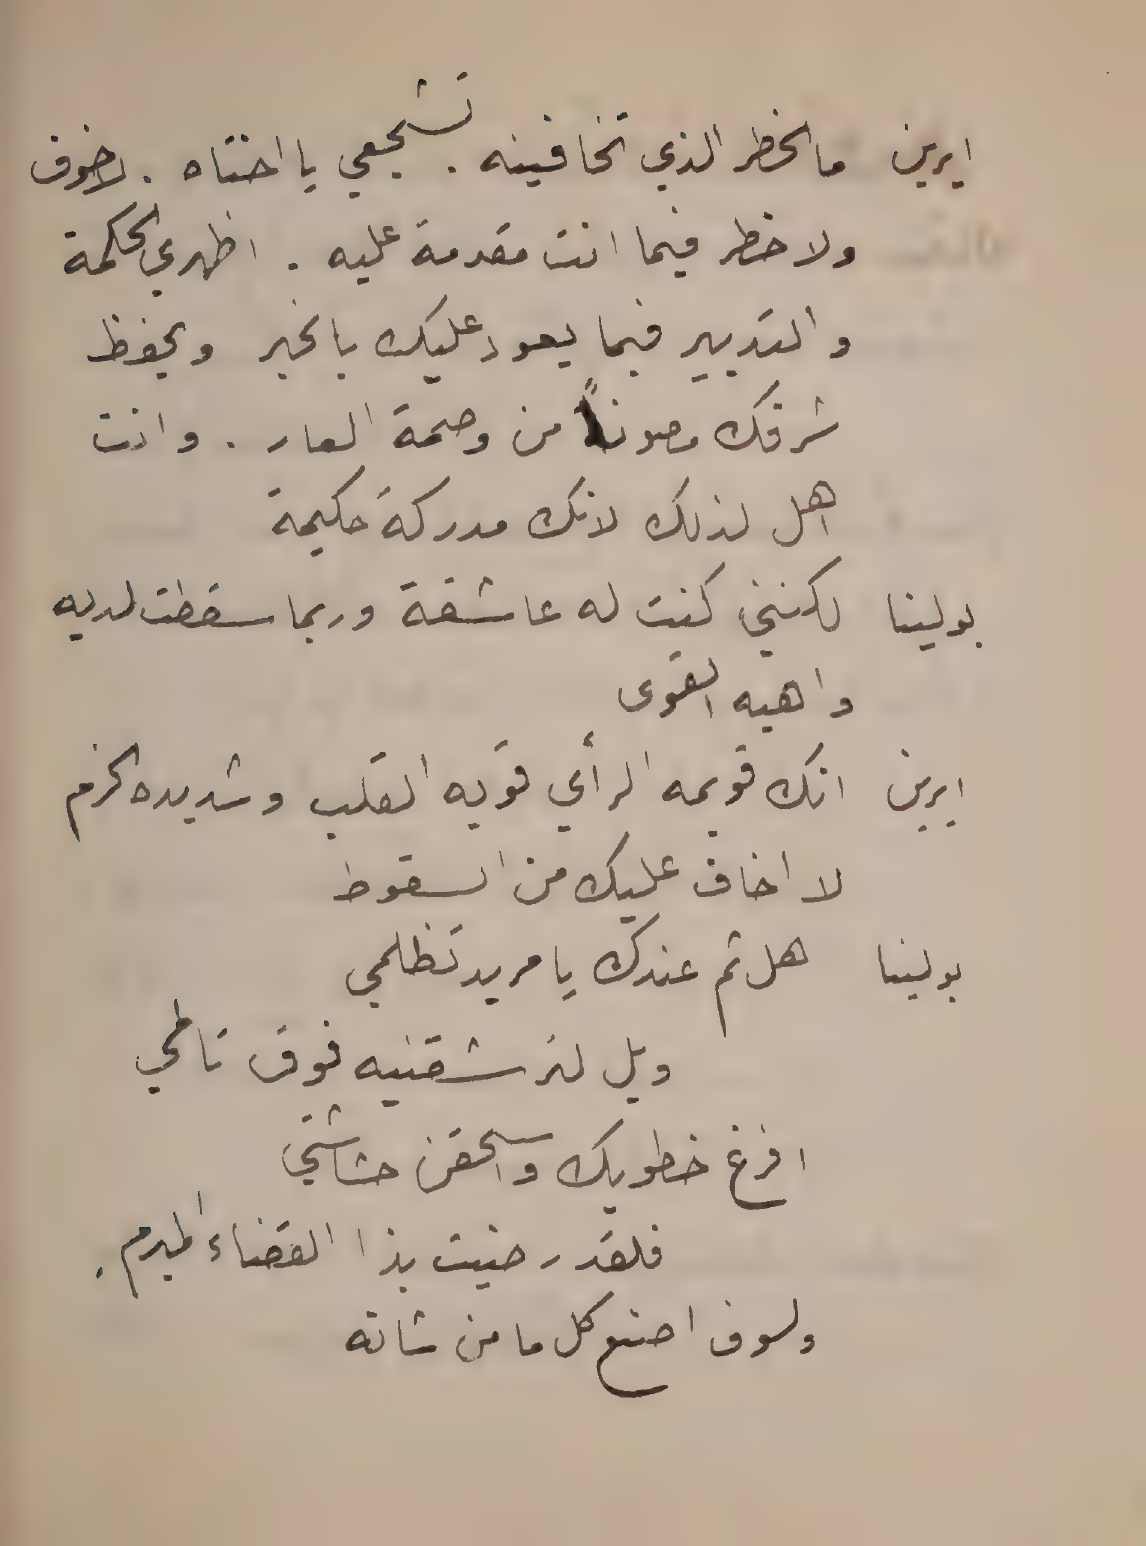 ايرين ما الخطر الذي تخافينه . تشجعي يا اختاه . لا خوف
ولا خطر فيما انت مقدمة عليه . اظهري الحكمة
والتدبير فيما يعود عليك بالخير ويحفظ
شرفك مصوناً من وصمة العار . وانت
اهل لذلك لانك مدركة حكيمة
بولينا لكنني كنت له عاشقة وربما سقطت لديه
واهيه القوى
ايرين انك قويمه الرأي قويه القلب وشديده الحزم
لا اخاف عليك من السقوط
بولينا هل ثم عندك يا مريد تظلمي
ويل لتر شقنيه فوق تاطمي
افرغ خطوبك واسحقن حشاشتي
فلقد رضيت بذا القضاء المبرم .
ولسوف اصنع كل ما من شانه